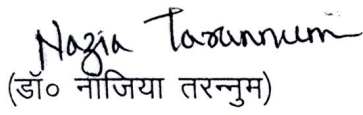 Nazia Tarannum
(डॉ० नाजिया तरन्नुम)